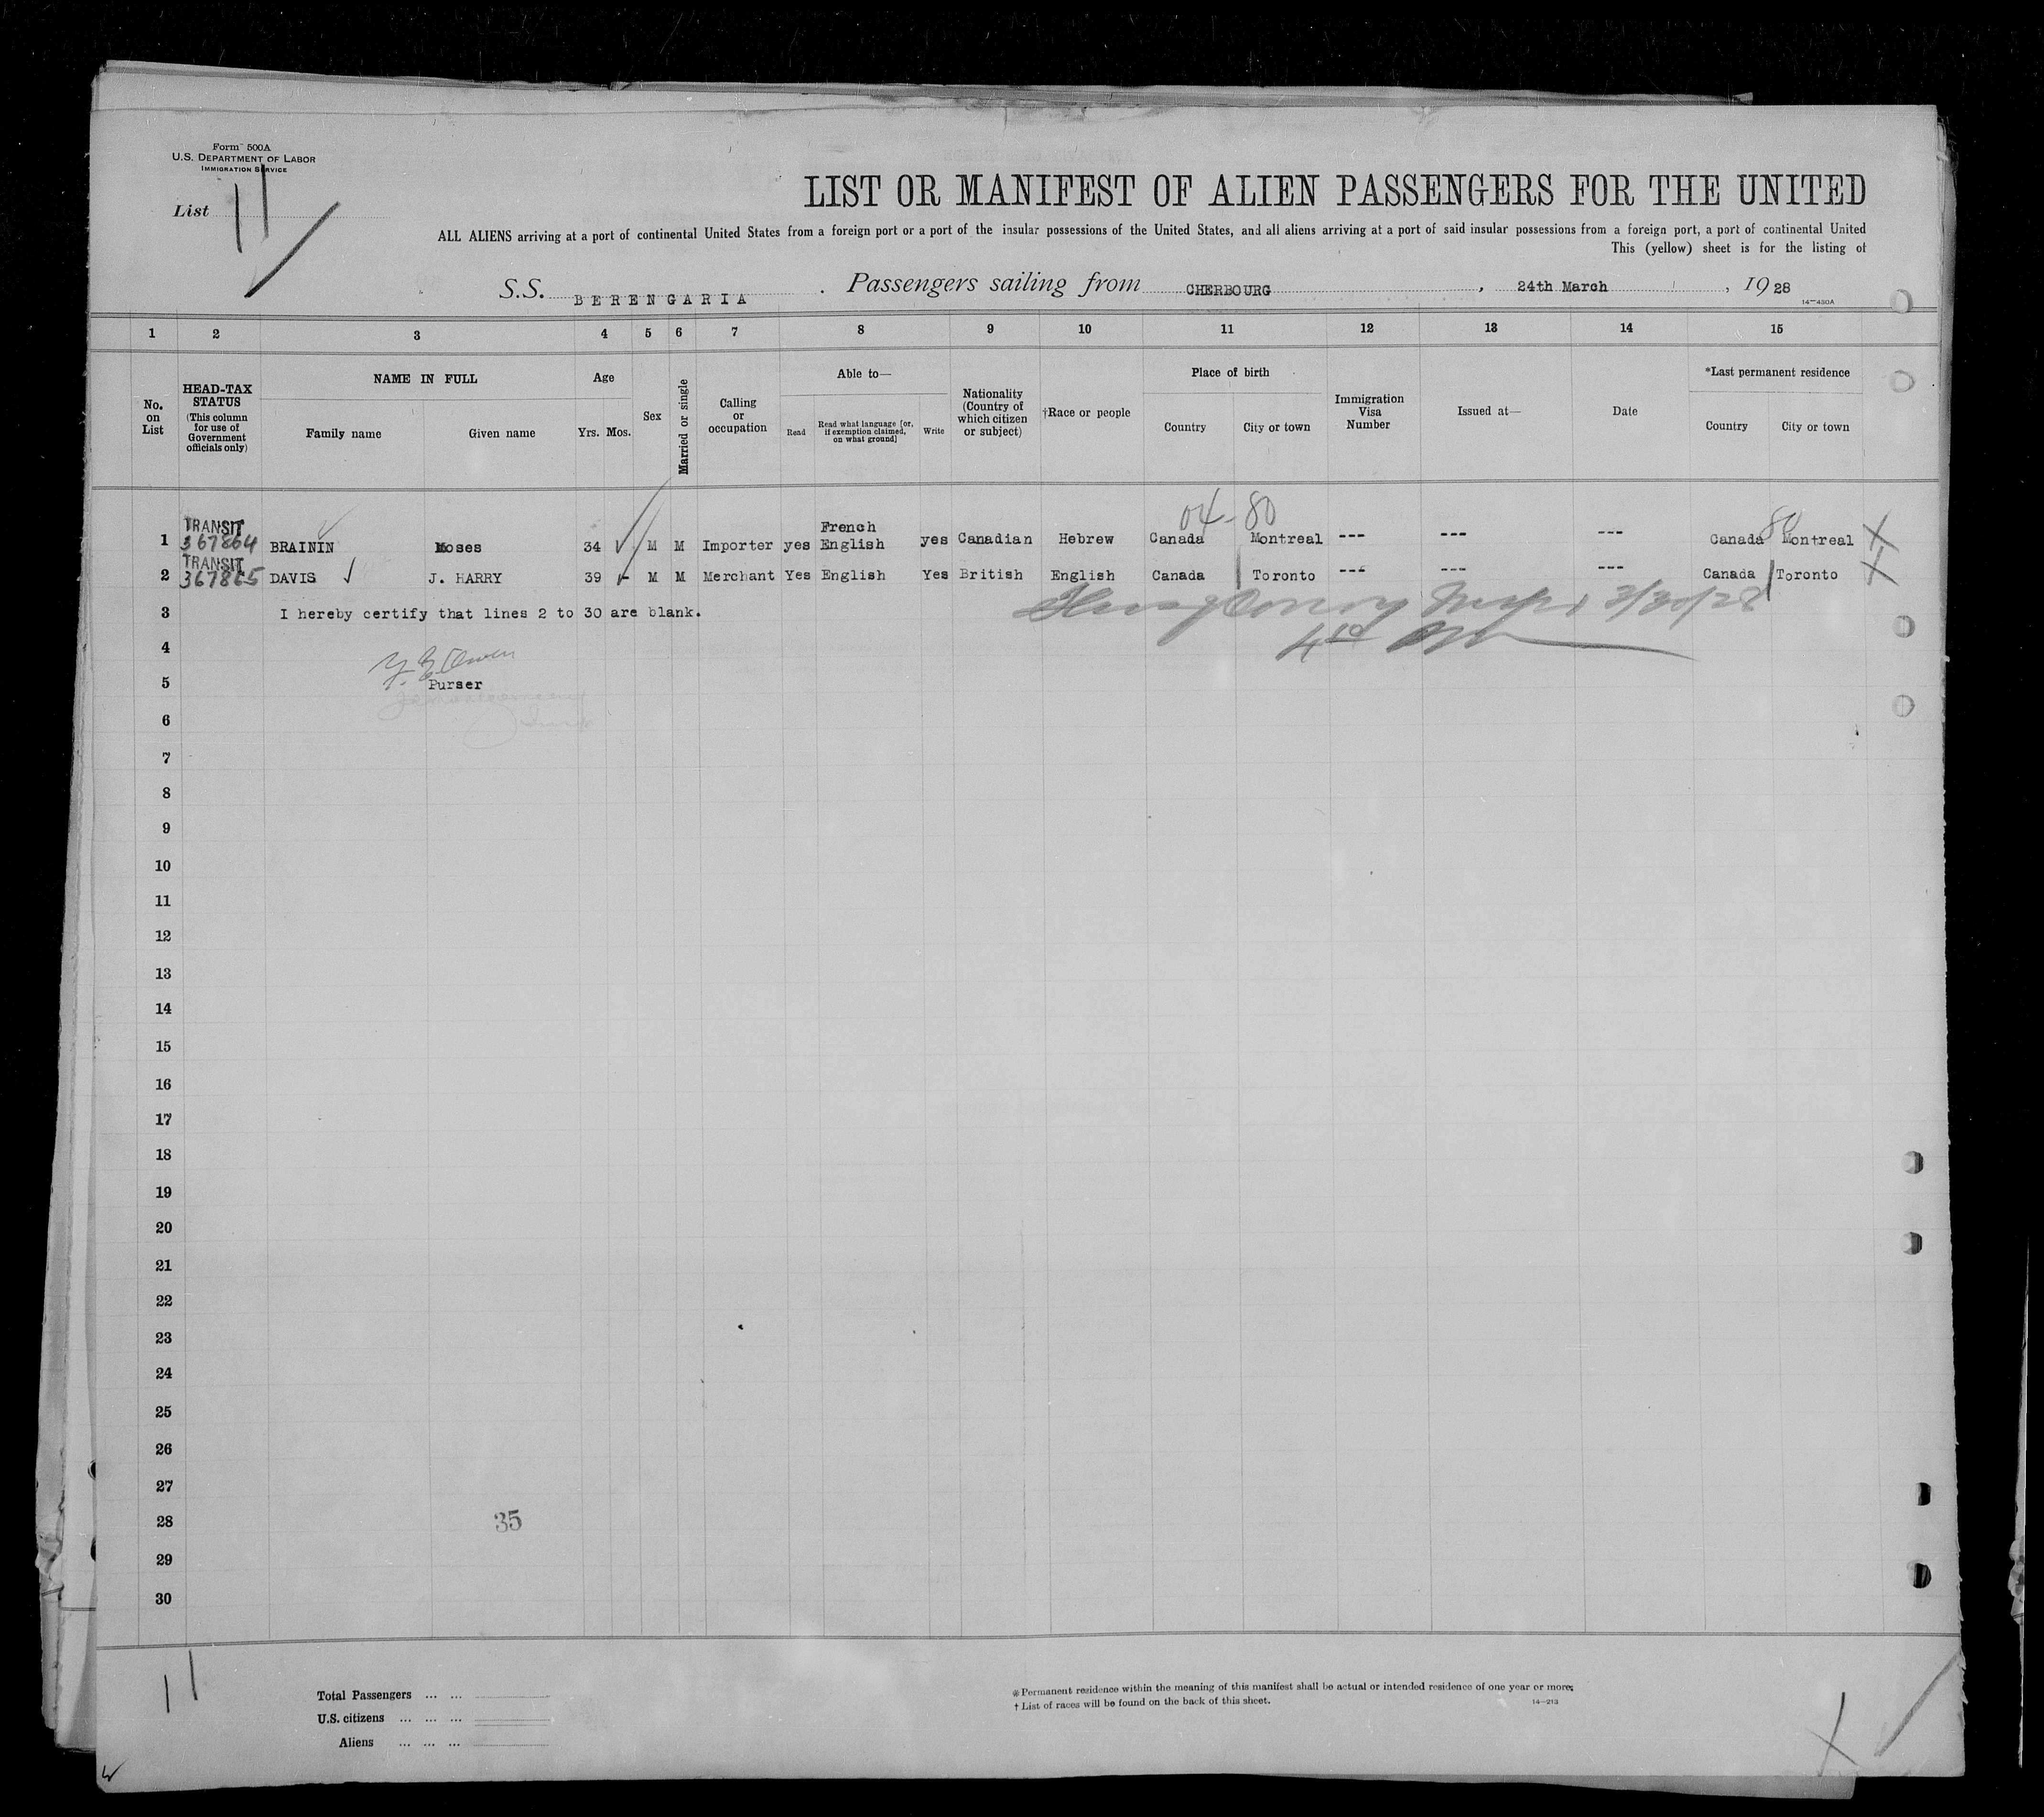 Form 500A
U.S. DEPARTMENT OF LABOR
IMMIGRATION SERVICE
List 11
LIST OR MANIFEST OF ALIEN PASSENGERS FOR THE UNITED
ALL ALIENS arriving at a port of continental United States from a foreign port or a port of the insular possessions of the United States, and all aliens arriving at a port of said insular possessions from a foreign port, a port of continental United
This (yellow) sheet is for the listing of
S.S. BERENGARIA . Passengers sailing from CHERBOURG , 24th March , 1928
14-430A
1 2 3 4 5 6 7 8 9 10 11 12 13 14 15
No. on List
HEAD-TAX STATUS (This column for use of Government officials only)
NAME IN FULL
Family name Given name
Age
Yrs. Mos.
Sex
Married or single
Calling or occupation
Able to—
Read Read what language [or, if exemption claimed, on what ground] Write
Nationality (Country of which citizen or subject)
†Race or people
Place of birth
Country City or town
Immigration Visa Number
Issued at—
Date
*Last permanent residence
Country City or town
04-80
80
1 TRANSIT 367864 BRAININ Moses 34 M M Importer yes French English yes Canadian Hebrew Canada Montreal --- --- --- Canada Montreal X
2 TRANSIT 367865 DAVIS J. HARRY 39 M M Merchant Yes English Yes British English Canada Toronto --- --- --- Canada Toronto X
3 I hereby certify that lines 2 to 30 are blank. 3/30/28
4
5 Purser
6
7
8
9
10
11
12
13
14
15
16
17
18
19
20
21
22
23
24
25
26
27
28 35
29
30
11
Total Passengers ... ...
U.S. citizens ... ... ...
Aliens ... ... ...
* Permanent residence within the meaning of this manifest shall be actual or intended residence of one year or more.
† List of races will be found on the back of this sheet.
14-213
X